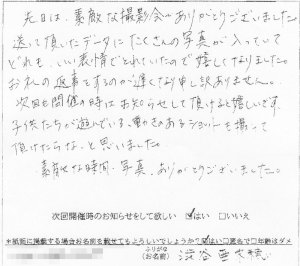 先日は、素敵な撮影会ありがとうございました。
送って頂いたデータにたくさんの写真が入っていて
どれも、いい表情でとれていたので嬉しくなりました。
お礼の返事をするのが遅くなり申し訳ありません。
次回も開催の時にはお知らせして頂けると嬉しいです。
子供たちが遊んでいる、動きのあるショットも撮って
頂けたらな、と思いました。
素敵な時間、写真、ありがとうございました。
次回開催時のお知らせをして欲しい ☑はい □いいえ
*紙紙に掲載する場合お名前を載せてもよろしいでしょうか?☑はい□匿名で□年齢はダメ
ふりがな
(お名前) 渋谷